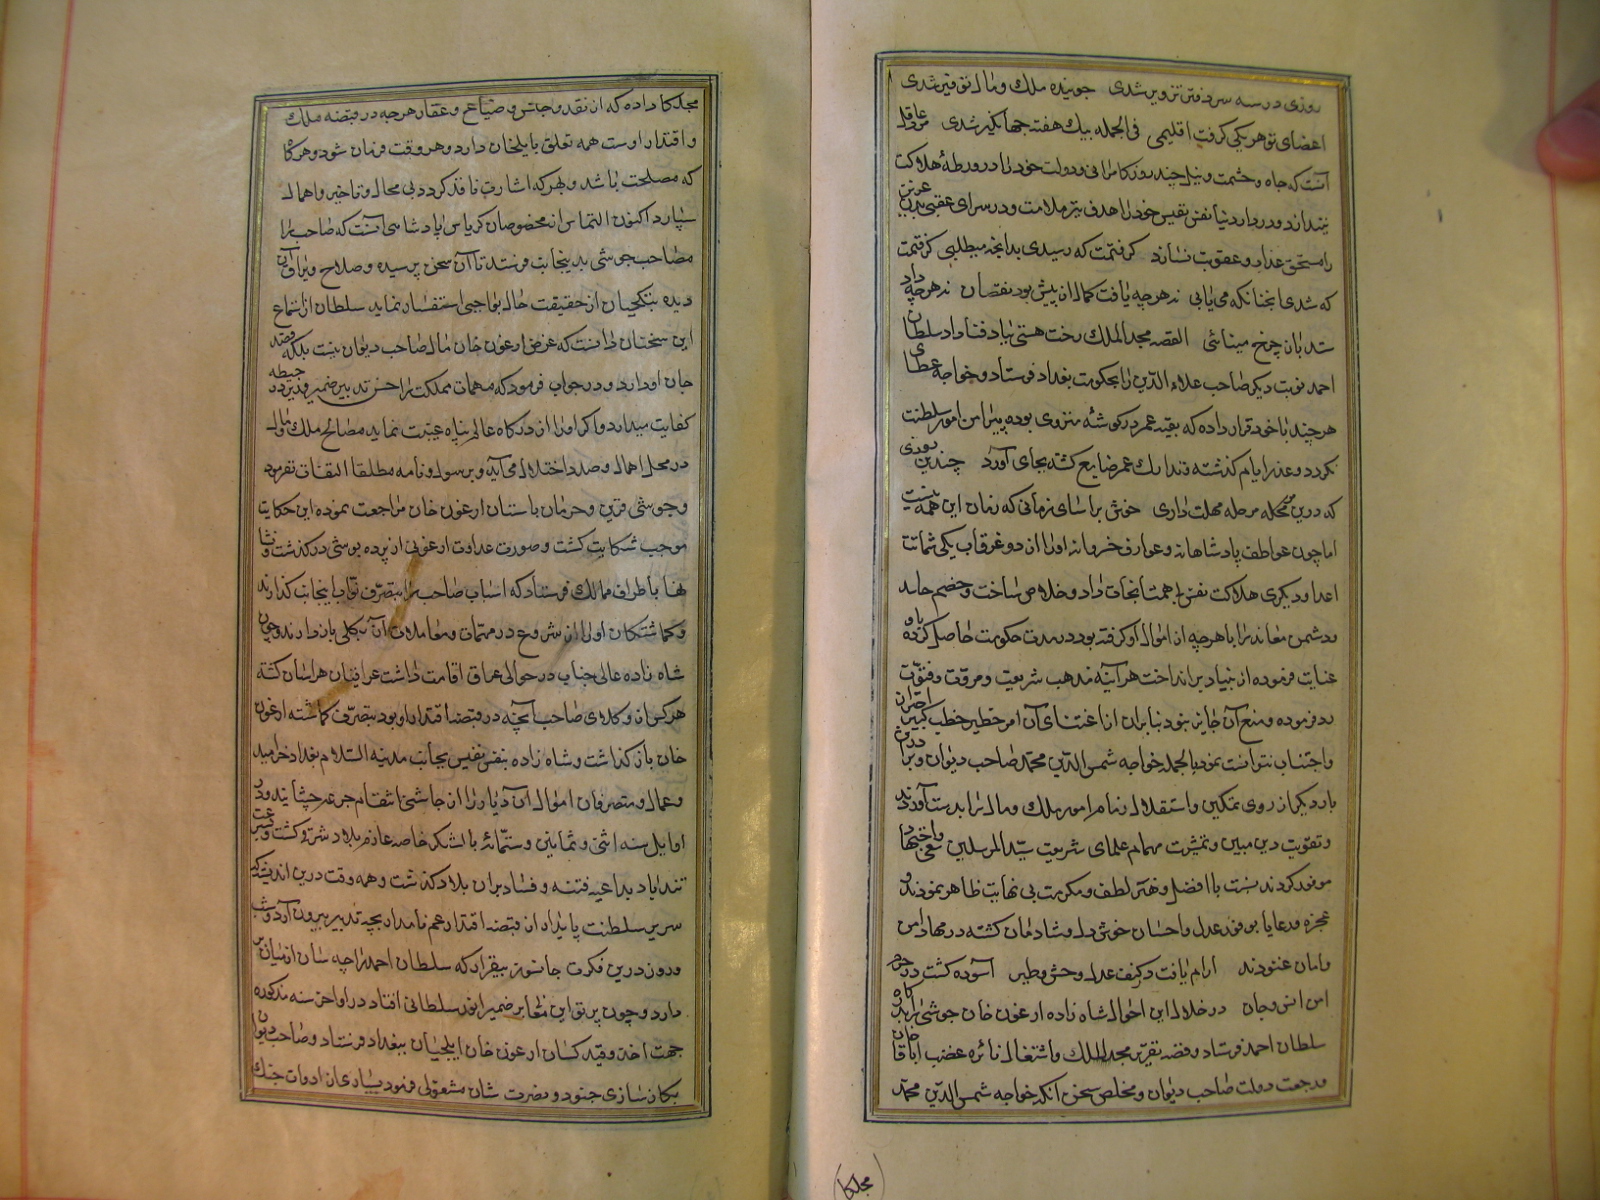 روزی در سه سر دفتر تزویر شدی جوینده ملک و مال توقیر شدی
اعضای تو هر یکی گرفت اقلیمی فی الجمله بیک هفته جهانگیر شدی مرد عاقل
آنست که جاه و حشمت و نیل چند روز کامرانی و دولت خود را در ورطهٔ هلاکت
نیندازد و در دار دنیا نفس نفیس خود را هدف تیر ملامت و در سرای عقبی
را مستحق عذاب و عقوبت نسازد گرفتمت که رسیدی بدانچه میطلبی گرفتمت
که شدی آنچنانکه می‌یابی نه هرچه یافت کمال از پیش بود نقصان نه هرچه داد
ستد باز چرخ مینائی القصه مجد الملک رخت هستی بباد فنا داد سلطان
احمد نوبت دیگر صاحب علاء الدین را بحکومت بغداد فرستاد و خواجه عطا
هرچند با خود قرار داده که بقیه عمر در گوشهٔ منزوی بوده پیرامن امور سلطنت
نگردد و عذر ایام گذشته و تدارک عمر ضایع گشته بجای آورد چندین روزی
که درین مرحله مهلت داری خوش براسای زمانی که زمان این همه نیست
اما چون عواطف پادشاهانه و عوارف خسروانه او را از دو غرقاب یکی شماتت
اعدا و دیگری هلاکت نفس نجات داد و خلاص ساخت و خصم جاسد
و دشمن معاند را با هرچه از اموال او گرفته بود در مدت حکومت حاصل کرده باو
عنایت فرموده از بنیاد برانداخت هر آینه مذهب شریعت و مروّت و فتوّت
رد فرموده و منع آن جایز نبود بنابران از اعتنای آن امر خطیر خطب کبیر احتراز
و اجتناب نتوانست نمود بالجمله خواجه شمس الدین محمد صاحب دیوان و برادرش
بار دیگر از روی تمکین و استقلال زمام امور ملک و مال را بدست آوردند
و تقویت دین مبین و تمشیت مهام علمای شریعت سیّد المرسلین سعی و اجتهاد
موفور کردند نسبت با افضل و هنر لطف و مکرمت بی نهایت ظاهر نمودند و
عجزه و رعایا بوفور عدل و احسان خوش دل و شادمان گشته در مهاد امن
و امان غنودند آرام یافت در کنف عدل وحش و طیر آسوده گشت در حرم
امن انس و جان در خلال این احوال شاه زاده ارغون خان جوشی را بدرگاه
سلطان احمد فرستاد و قصه تقریر مجد الملک و اشتغال نائره غضب اباقا خان
و رجعت دولت صاحب دیوان و مخلص سخن آنکه خواجه شمس الدین محمد
مجلکا
مجلکا داده که از نقد و جنس و ضیاع و عقار هرچه در قبضه ملک
و اقتدار اوست همه تعلق بایلخان دارد و هر وقت فرمان شود و هرگاه
که مصلحت باشد و بهر که اشارت نافذ گردد بی محال و تاخیر و اهمال
سپارد اکنون التماس از مخصوصان کریاس پادشاهی آنست که صاحب را
مصاحب جوشی بدینجانب فرستد تا آن سخن پرسیده و صلاح
دیده بیتکچیان از حقیقت حال بواجبی استفسار نماید سلطان از استماع
این سخنان دانست که غرض ارغون خان مال صاحب دیوان نیست بلکه قصد
جان او دارد و در جواب فرمود که مهمات مملکت را حسن تدبیر ضمیر وزیر در حیطه
کفایت میدارد و اگر او را از درگاه عالم پناه غیبت نماید مصالح ملک و مال
در محل اهمال و صدد اختلال می‌آید و برسول و نامه مطلقا التفات نفرمود
و جوشی قرین و حرمان باستان ارغون خان مراجعت نموده این حکایت
موجب شکایت گشت و صورت عداوت ارغونی از پرده پوشی درگذشت و
باطراف ممالک فرستاد که اسباب صاحب را بتصرف نواب اینجانب گذارند
و گماشتگان او را از شروع در مهمات و معاملات آن بکلی باز دارند و چون
شاه زاده عالی جناب در حوالی عراق اقامت داشت عراقیان هراسان گشته
هرکس از وکلای صاحب آنچه در قبضه اقتدار او بود بتصرّف گماشته ارغون
خان باز گذاشت و شاه زاده بنفس نفیس بجانب مدینه السّلام بغداد خرامید
و عمال و متصرفان اموال آن دیار را از چاشنی انتقام جرعه چشانیدند و در
اوایل سنه اثنی و ثمانین و ستمائه با لشکر خاصه عازم بلاد شرق گشت
بداعیه فتنه و فساد بران بلاد گذشت و همه وقت درین اندیشه که
سریر سلطنت پایدار از قبضه اقتدار عم نامدار بچه تدبیر بیرون آرد و شب
و روز درین فکرت جانسوز بیقرار که سلطان احمد را چه سان از میان بر
دارد و چون پرتو این معنی بر ضمیر انور سلطانی افتاد در اواخر سنه مذکوره
جهت اخذ و قید کسان ارغون خان ایلچیان ببغداد فرستاد و صاحب دیوان
بکارسازی جنود و نصرت شان مشغولی فرمود بسیاری از ادوات جنک